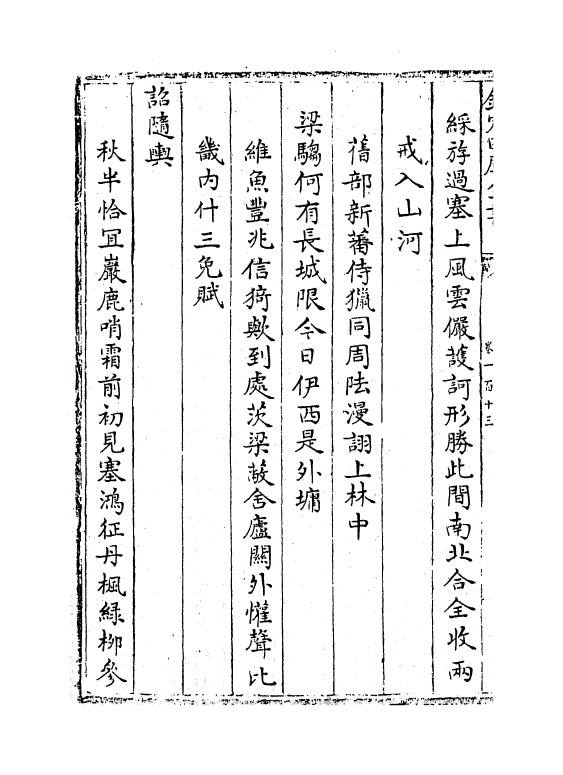 欽定四庫全書
卷一百十三
綵斿過塞上風雲儼護訶形勝此間南北合全收兩
戒入山河
舊部新藩侍獵同周阹漫詡上林中
梁騶何有長城限今日伊西是外墉
維魚豐兆信猗歟到處茨梁敵舍廬關外懽聲比
畿内什三免賦
詔隨輿
秋半恰宜巖鹿哨霜前初見塞鴻征丹楓緑栁參